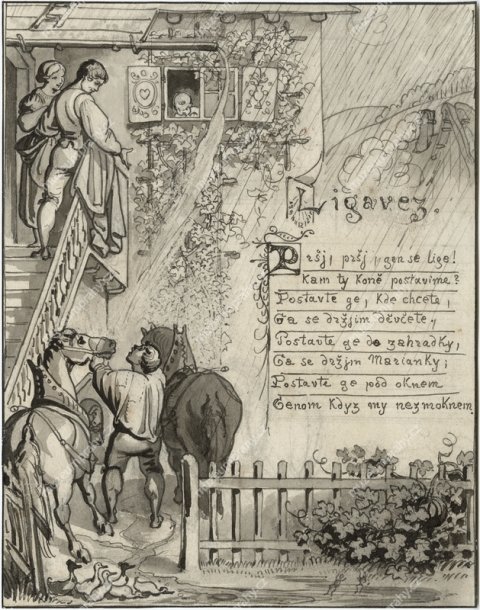 Ligavez.
Pršj, pršj, gen se lige!
Kam ty Koně postavime?
Postavte ge, kde chcete,
Ga se držjm děvčete.
Postavte ge do zahradky,
Ga se držjm Marianky;
Postavte ge pod oknem
Genom když my nezmoknem.